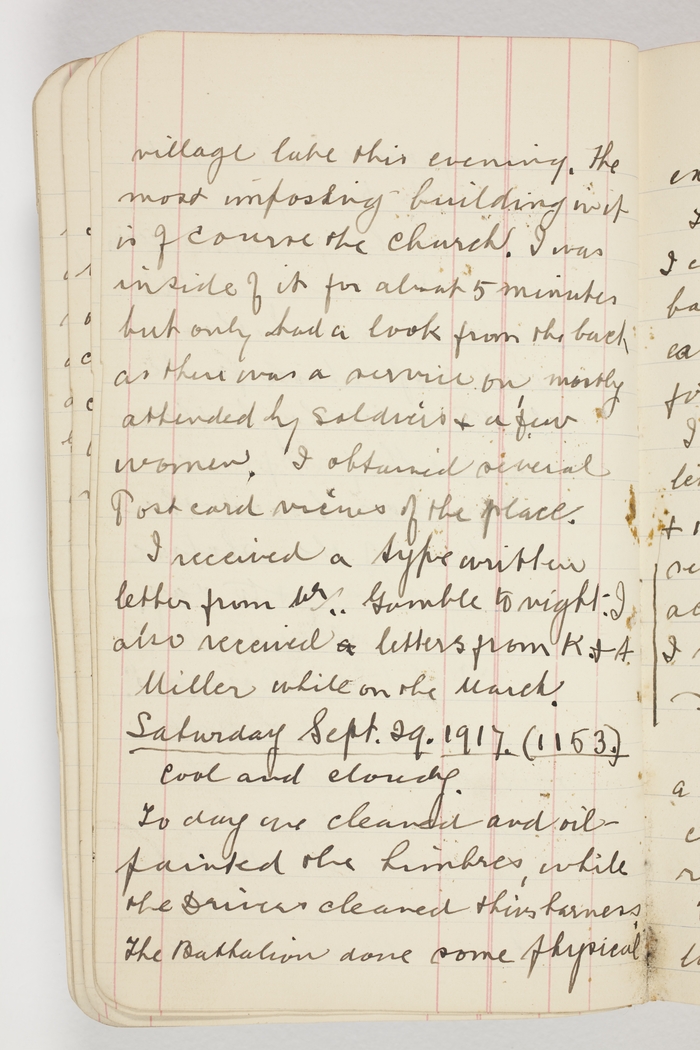 village late this evening. The
most imposing building in it
is of course the church. I was
inside of it for about 5 minutes
but only had a look from the back
as there was a service on mostly
attended by soldiers & a few
women. I obtained several
Post card views of the place.
I received a type written
letter from Gamble to night. I
also received letters from K. & A.
Miller while on the March.
Saturday Sept. 29. 1917. (1153)
Cool and cloudy.
To day we cleaned and oil-
painted the limbres, while
the Drivers cleaned their harness.
The Battalion done some physical